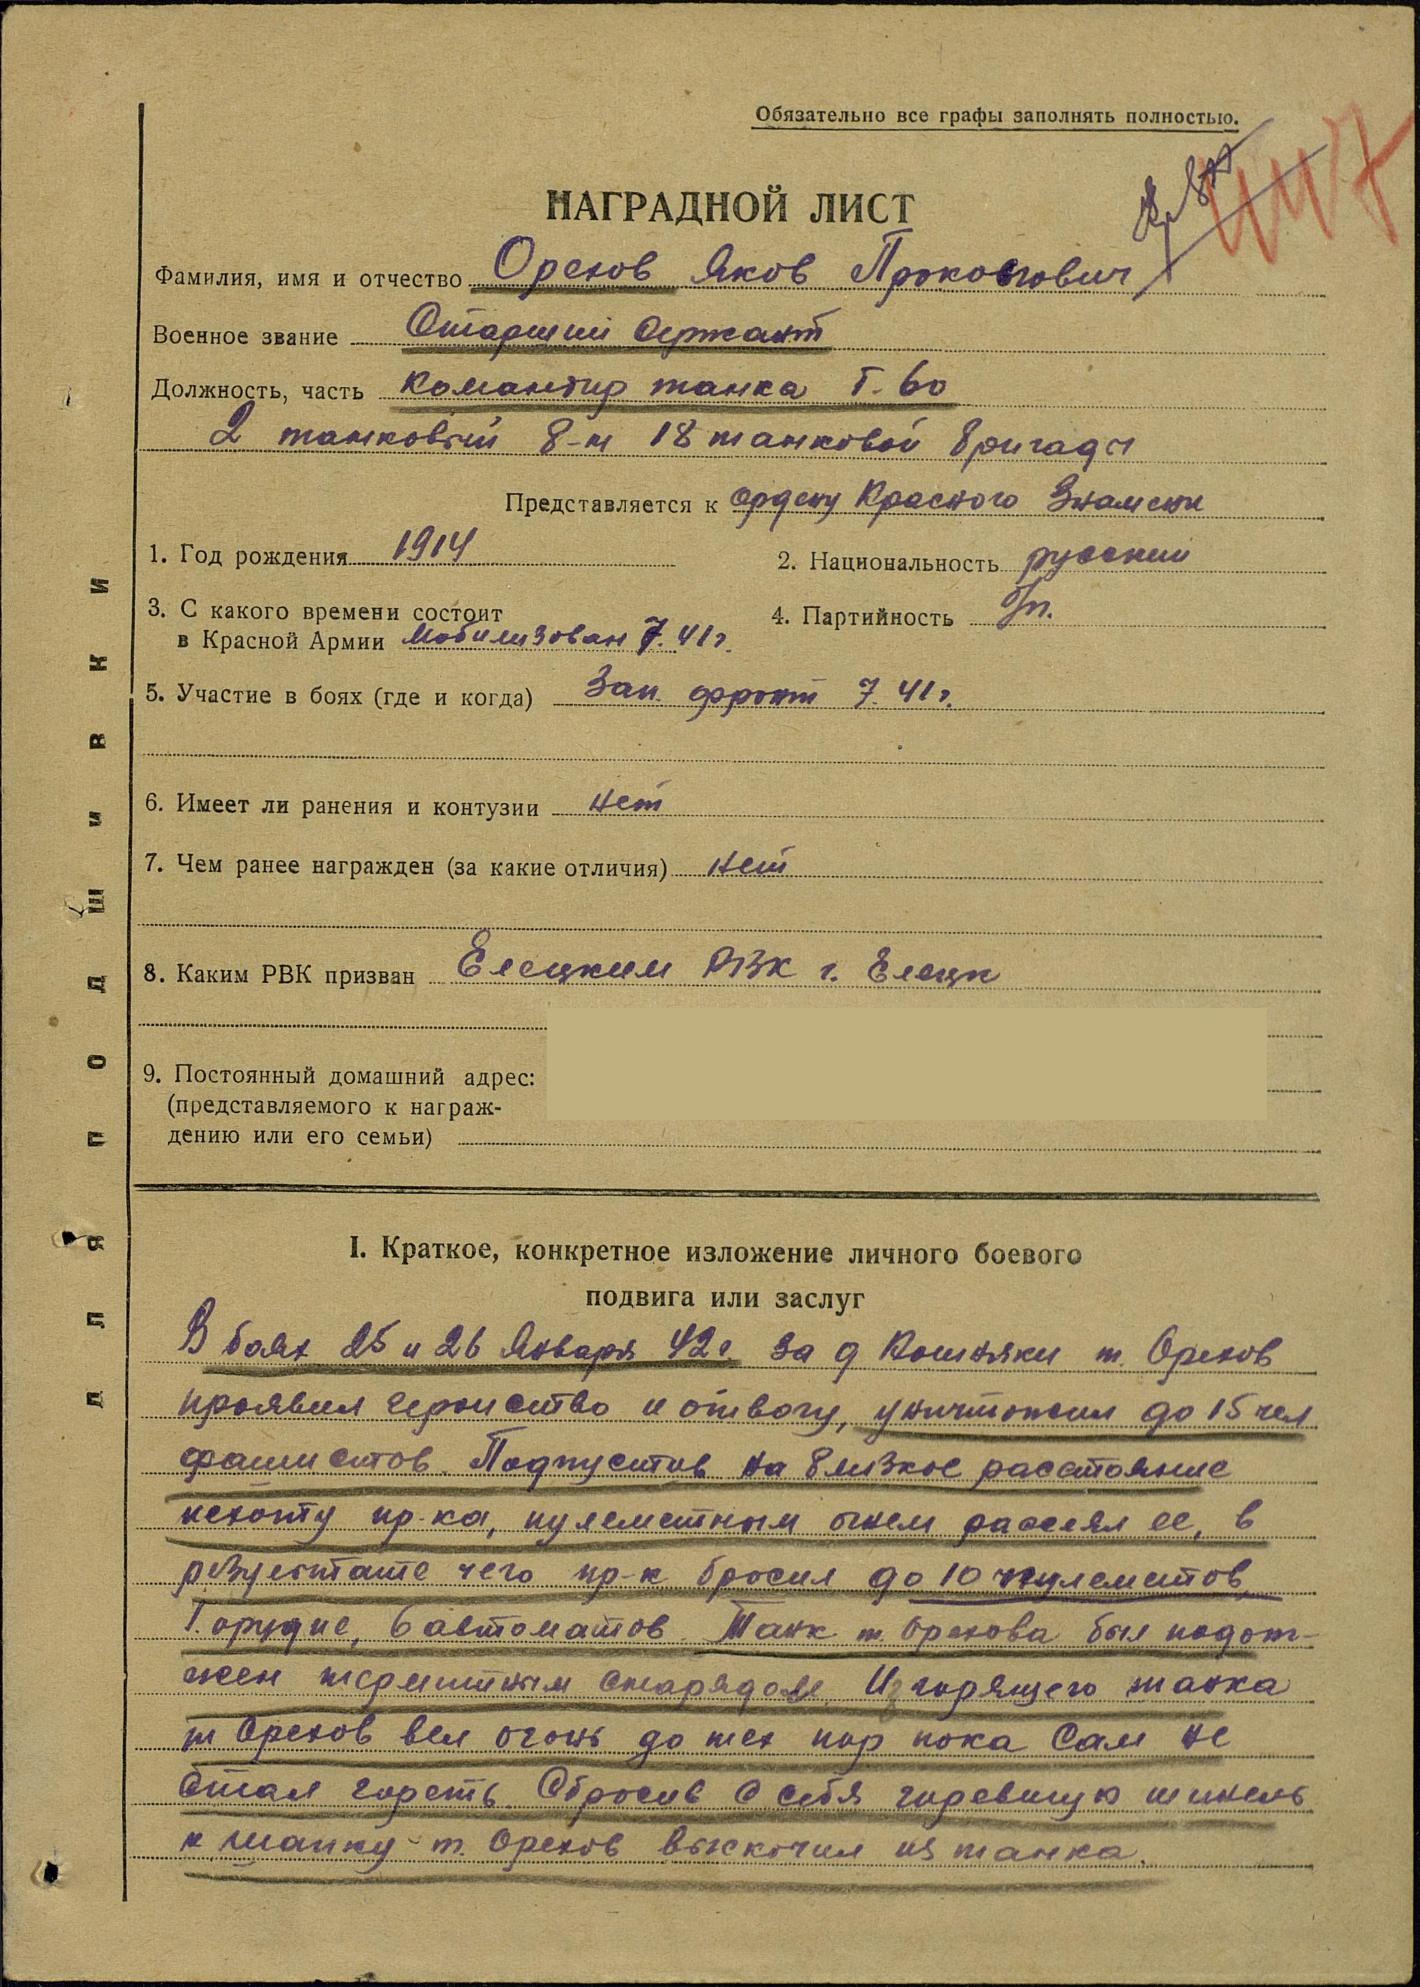 Обязательно все графы заполнять полностью.
НАГРАДНОЙ ЛИСТ
Фамилия, имя и отчество Орехов Яков Прокопович
Военное звание Старший сержант
Должность, часть командир танка Т-60
2 танковый б-н 18 танковой бригады
Представляется к ордену Красного Знамени
1. Год рождения 1914
2. Национальность русский
3. С какого времени состоит
в Красной Армии Мобилизован 7.41 г.
4. Партийность б/п.
5. Участие в боях (где и когда) Зап. фронт 7.41 г.
6. Имеет ли ранения и контузии нет
7. Чем ранее награжден (за какие отличия) нет
8. Каким РВК призван Елецким РВК г. Елецк
9. Постоянный домашний адрес:
(представляемого к награж-
дению или его семьи)
I. Краткое, конкретное изложение личного боевого
подвига или заслуг
В боях 25 и 26 Января 42 г. за д т. Орехов
проявил героиство и отвагу, уничтожил до 15 чел
фашистов. Подпустив на близкое расстояние
пехоту пр-ка, пулеметным огнем рассеял ее, в
результате чего пр-к бросил до 10 пулеметов,
1 орудие, 6 автоматов. Танк т. Орехова был подож-
жен термитным снарядом. Из горящего танка
т Орехов вел огонь до тех пор пока сам не
стал гореть. Сбросив с себя горевшую шинель
и шапку т. Орехов выскочил из танка.
ДЛЯ ПОДШИВКИ